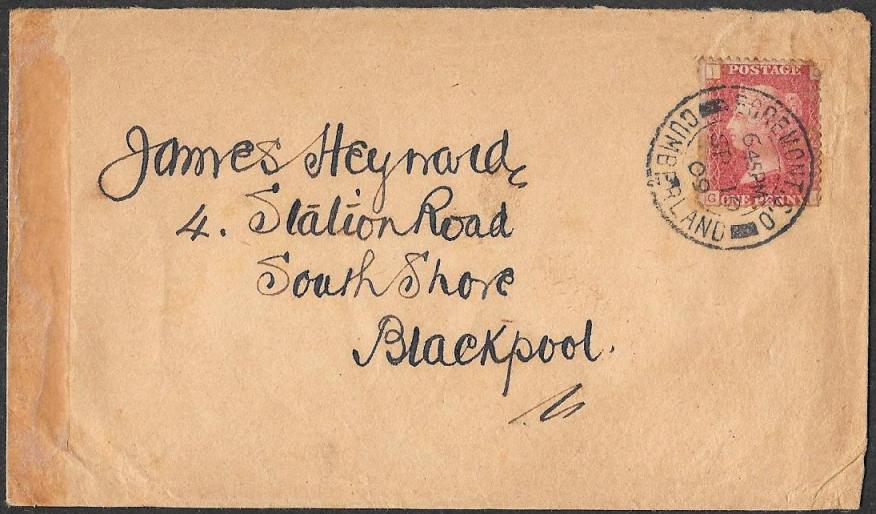 James Heyward,
4. Station Road
South Shore
Blackpool.
I POSTAGE G
G ONE PENNY
EGREMONT S.O
6 45 PM
SP 10
09
CUMBERLAND